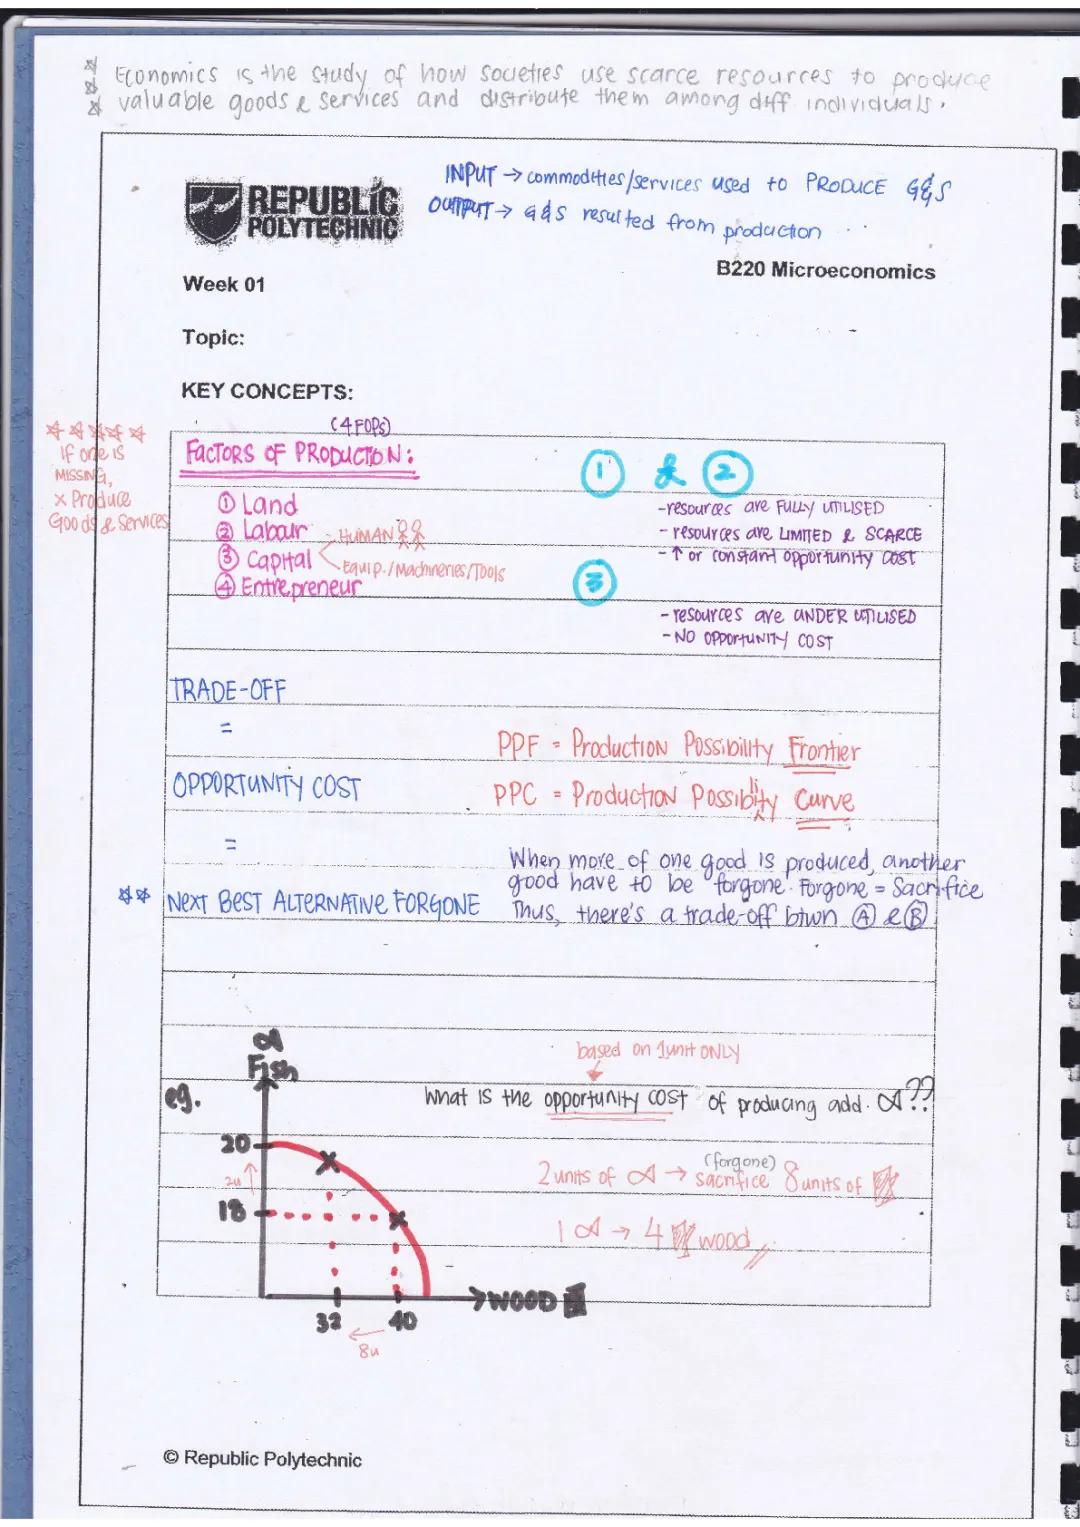 Economics is the study of how societies use scarce resources to produce
valuable goods & services and distribute them among diff individuals.
INPUT → commodities/services used to PRODUCE G&S
OUTPUT → G&S resulted from production
REPUBLIC
POLYTECHNIC
B220 Microeconomics
Week 01
Topic:
KEY CONCEPTS:
If one is
MISSING,
x Produce
Goods & Services
(4 FOPs)
FACTORS OF PRODUCTION:
① Land
② Labour
③ Capital
④ Entrepreneur
HUMAN
Equip./Machineries/Tools
① & ②
- resources are FULLY UTILISED
- resources are LIMITED & SCARCE
- ↑ or constant opportunity cost
③
- resources are UNDER UTILISED
- NO OPPORTUNITY COST
TRADE-OFF
=
OPPORTUNITY COST
=
NEXT BEST ALTERNATIVE FORGONE
PPF = Production Possibility Frontier
PPC = Production Possibility Curve
When more of one good is produced, another
good have to be forgone. Forgone = Sacrifice
Thus, there's a trade-off btwn Ⓐ & Ⓑ
eg.
Fish
20
2u ↑
18
32
40
← 8u
WOOD
based on 1unit ONLY
What is the opportunity cost of producing add. ??
(forgone)
2 units of → sacrifice 8 units of
1 → 4 wood
© Republic Polytechnic